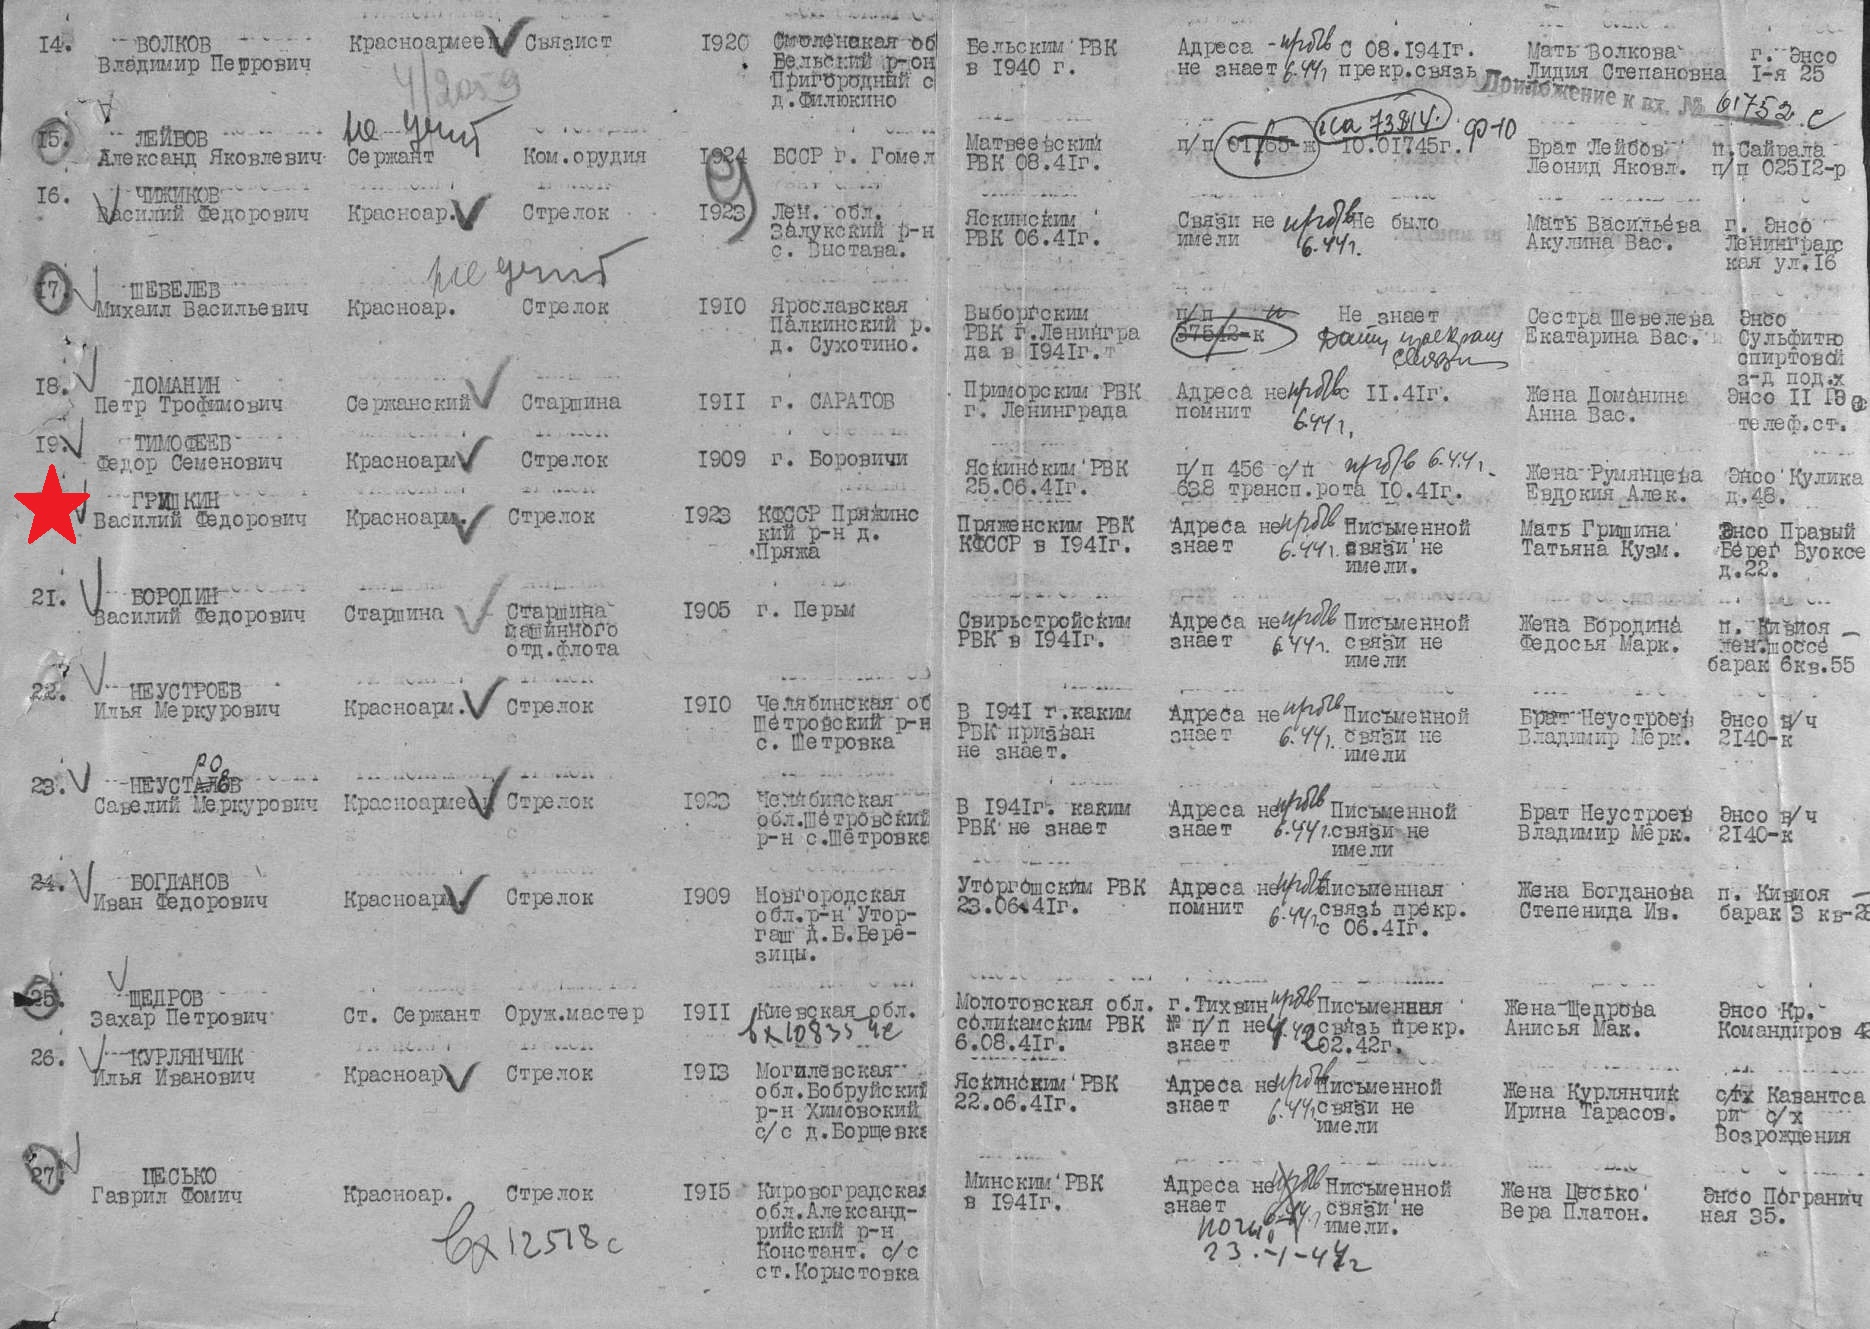 14. ВОЛКОВ Красноармеец Связист 1920 Смоленская об Бельским РВК Адреса - проп/в С 08.1941г. Мать Волкова г. Энсо
Владимир Петрович Бельский р-он в 1940 г. не знает 6.44г прекр.связь Лидия Степановна 1-я 25
4/2059 Пригородный с Приложение к вх. № 61752 с
д.Филюкино
15. ЛЕЙБОВ не учит Матвеевский на 73814. Ф-10
Александ Яковлевич Сержант Ком.орудия 1924 БССР г. Гомел РВК 08.41г. п/п 01765-ж 10.01745г. Брат Лейбов п.Сайрала
Леонид Яковл. п/п 02512-р
16. ЧИЖИКОВ
Василий Федорович Красноар. Стрелок 1923 Лен. обл. Яскинским Связи не проп/в Не было Мать Васильева г. Энсо
9 Залукский р-н РВК 06.41г. имели 6.44г. Акулина Вас. Ленинградс
с. Выстава. кая ул.16
17. ШЕВЕЛЕВ не учит
Михаил Васильевич Красноар. Стрелок 1910 Ярославская Выборгским п/п Не знает Сестра Шевелева Энсо
Палкинский р. РВК г.Ленингра 57542-к Екатарина Вас. Сульфитно
д. Сухотино. да в 1941г. связи спиртовой
з-д под.х
18. ДОМАНИН Приморским РВК Адреса не проп/в с 11.41г. Жена Доманина Энсо 11 19
Петр Трофимович Сержанский Старшина 1911 г. САРАТОВ г. Ленинграда помнит 6.44г. Анна Вас. телеф.ст.
19. ТИМОФЕЕВ
Федор Семенович Красноарм Стрелок 1909 г. Боровичи Яскинским РВК п/п 456 с/п проп/в 6.44г. Жена Румянцева Энсо Кулика
25.06.41г. 638 трансп.рота 10.41г. Евдокия Алек. д.48.
ГРИШКИН
Василий Федорович Красноарм. Стрелок 1923 КФССР Пряжинс Пряженским РВК Адреса не проп/в Письменной Мать Гришина Энсо Правый
кий р-н д. КФССР в 1941г. знает 6.44г. связи не Татьяна Кузм. Берег Вуоксе
Пряжа имели. д.22.
21. БОРОДИН
Василий Федорович Старшина Старшина 1905 г. Перьм Свирьстройским Адреса не проп/в Письменной Жена Бородина п. Кивиоя
машинного РВК в 1941г. знает 6.44г. связи не Федосья Марк. лен.шоссе
отд.флота имели барак 6кв.55
22. НЕУСТРОЕВ
Илья Меркурович Красноарм. Стрелок 1910 Челябинская об В 1941 г.каким Адреса не проп/в Письменной Брат Неустроев Энсо в/ч
Шетровский р-н РВК призван знает 6.44г. связи не Владимир Мерк. 2140-к
с. Шетровка не знает. имели
ро
23. НЕУСТАЛОВ
Савелий Меркурович Красноармеец Стрелок 1923 Челябинская В 1941г. каким Адреса не проп/в Письменной Брат Неустроев Энсо в/ч
обл.Шетровский РВК не знает знает 6.44г. связи не Владимир Мерк. 2140-к
р-н с.Шетровка имели
24. БОГДАНОВ
Иван Федорович Красноарм. Стрелок 1909 Новгородская Уторгошским РВК Адреса не проп/в Письменная Жена Богданова п. Кивиоя
обл.р-н Утор- 23.06.41г. помнит 6.44г. связь прекр. Степенида Ив. барак 3 кв-28
гаш д.Б.Бере- с 06.41г.
зицы.
25. ЩЕДРОВ
Захар Петрович Ст. Сержант Оруж.мастер 1911 Киевская обл. Молотовская обл. г.Тихвин проп/в Письменная Жена Щедрова Энсо Кр.
вх 10835 соликамским РВК № п/п не 4.42 связь прекр. Анисья Мак. Командиров 42
6.08.41г. знает 02.42г.
26. КУРЛЯНЧИК
Илья Иванович Красноар Стрелок 1913 Могилевская Яскинским РВК Адреса не проп/в Письменной Жена Курлянчик с/х Кавантса
обл.Бобруйский 22.06.41г. знает 6.44г. связи не Ирина Тарасов. ри с/х
р-н Химовский имели Возрождения
с/с д.Борщевка
27. ЦЕСЬКО
Гаврил Фомич Красноар. Стрелок 1915 Кировоградская Минским РВК Адреса не проп/в Письменной Жена Цесько Энсо Погранич
обл.Александ- в 1941г. знает 6.44г. связи не Вера Платон. ная 35.
рийский р-н погиб имели.
вх 12518 с Констант. с/с 23.-1-44г
ст.Корыстовка